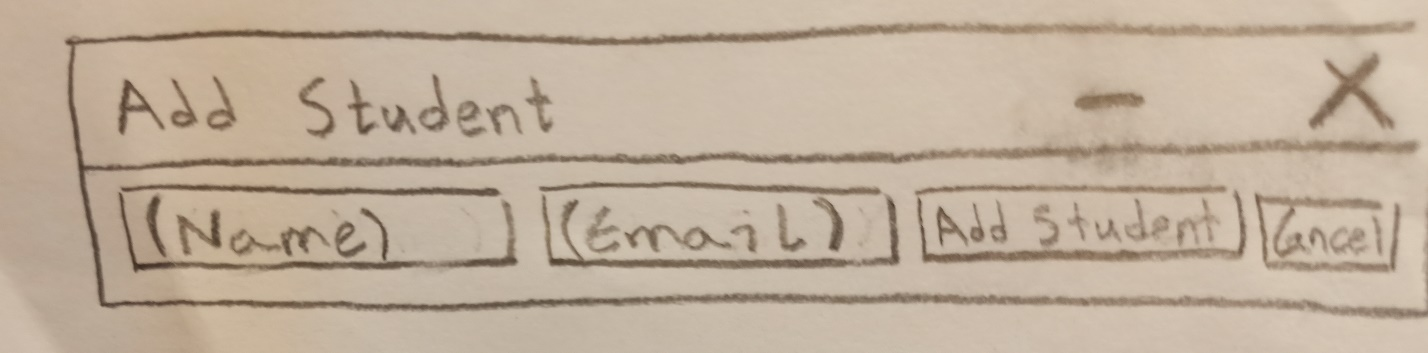 Add Student - X
(Name) (Email) Add Student Cancel